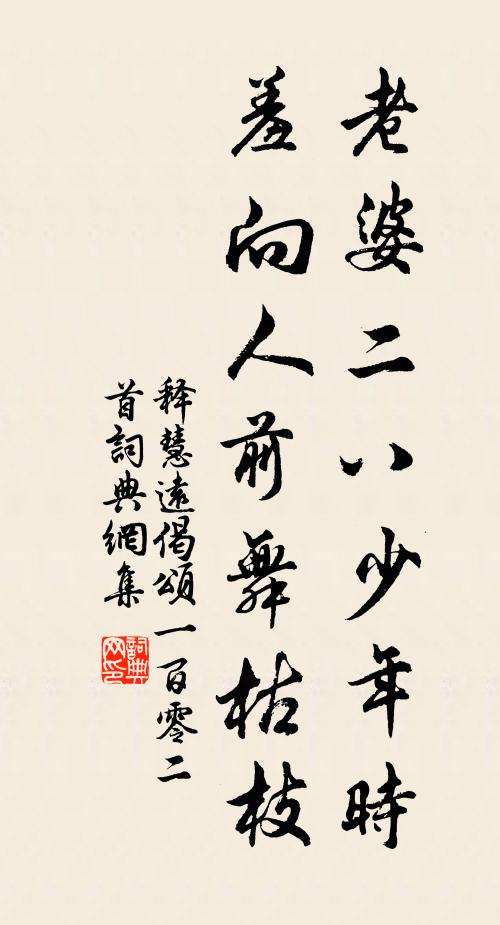 老婆二八少年時
羞向人前舞枯枝
释慧遠偈頌一百零二
首詞典網集
詞典网印